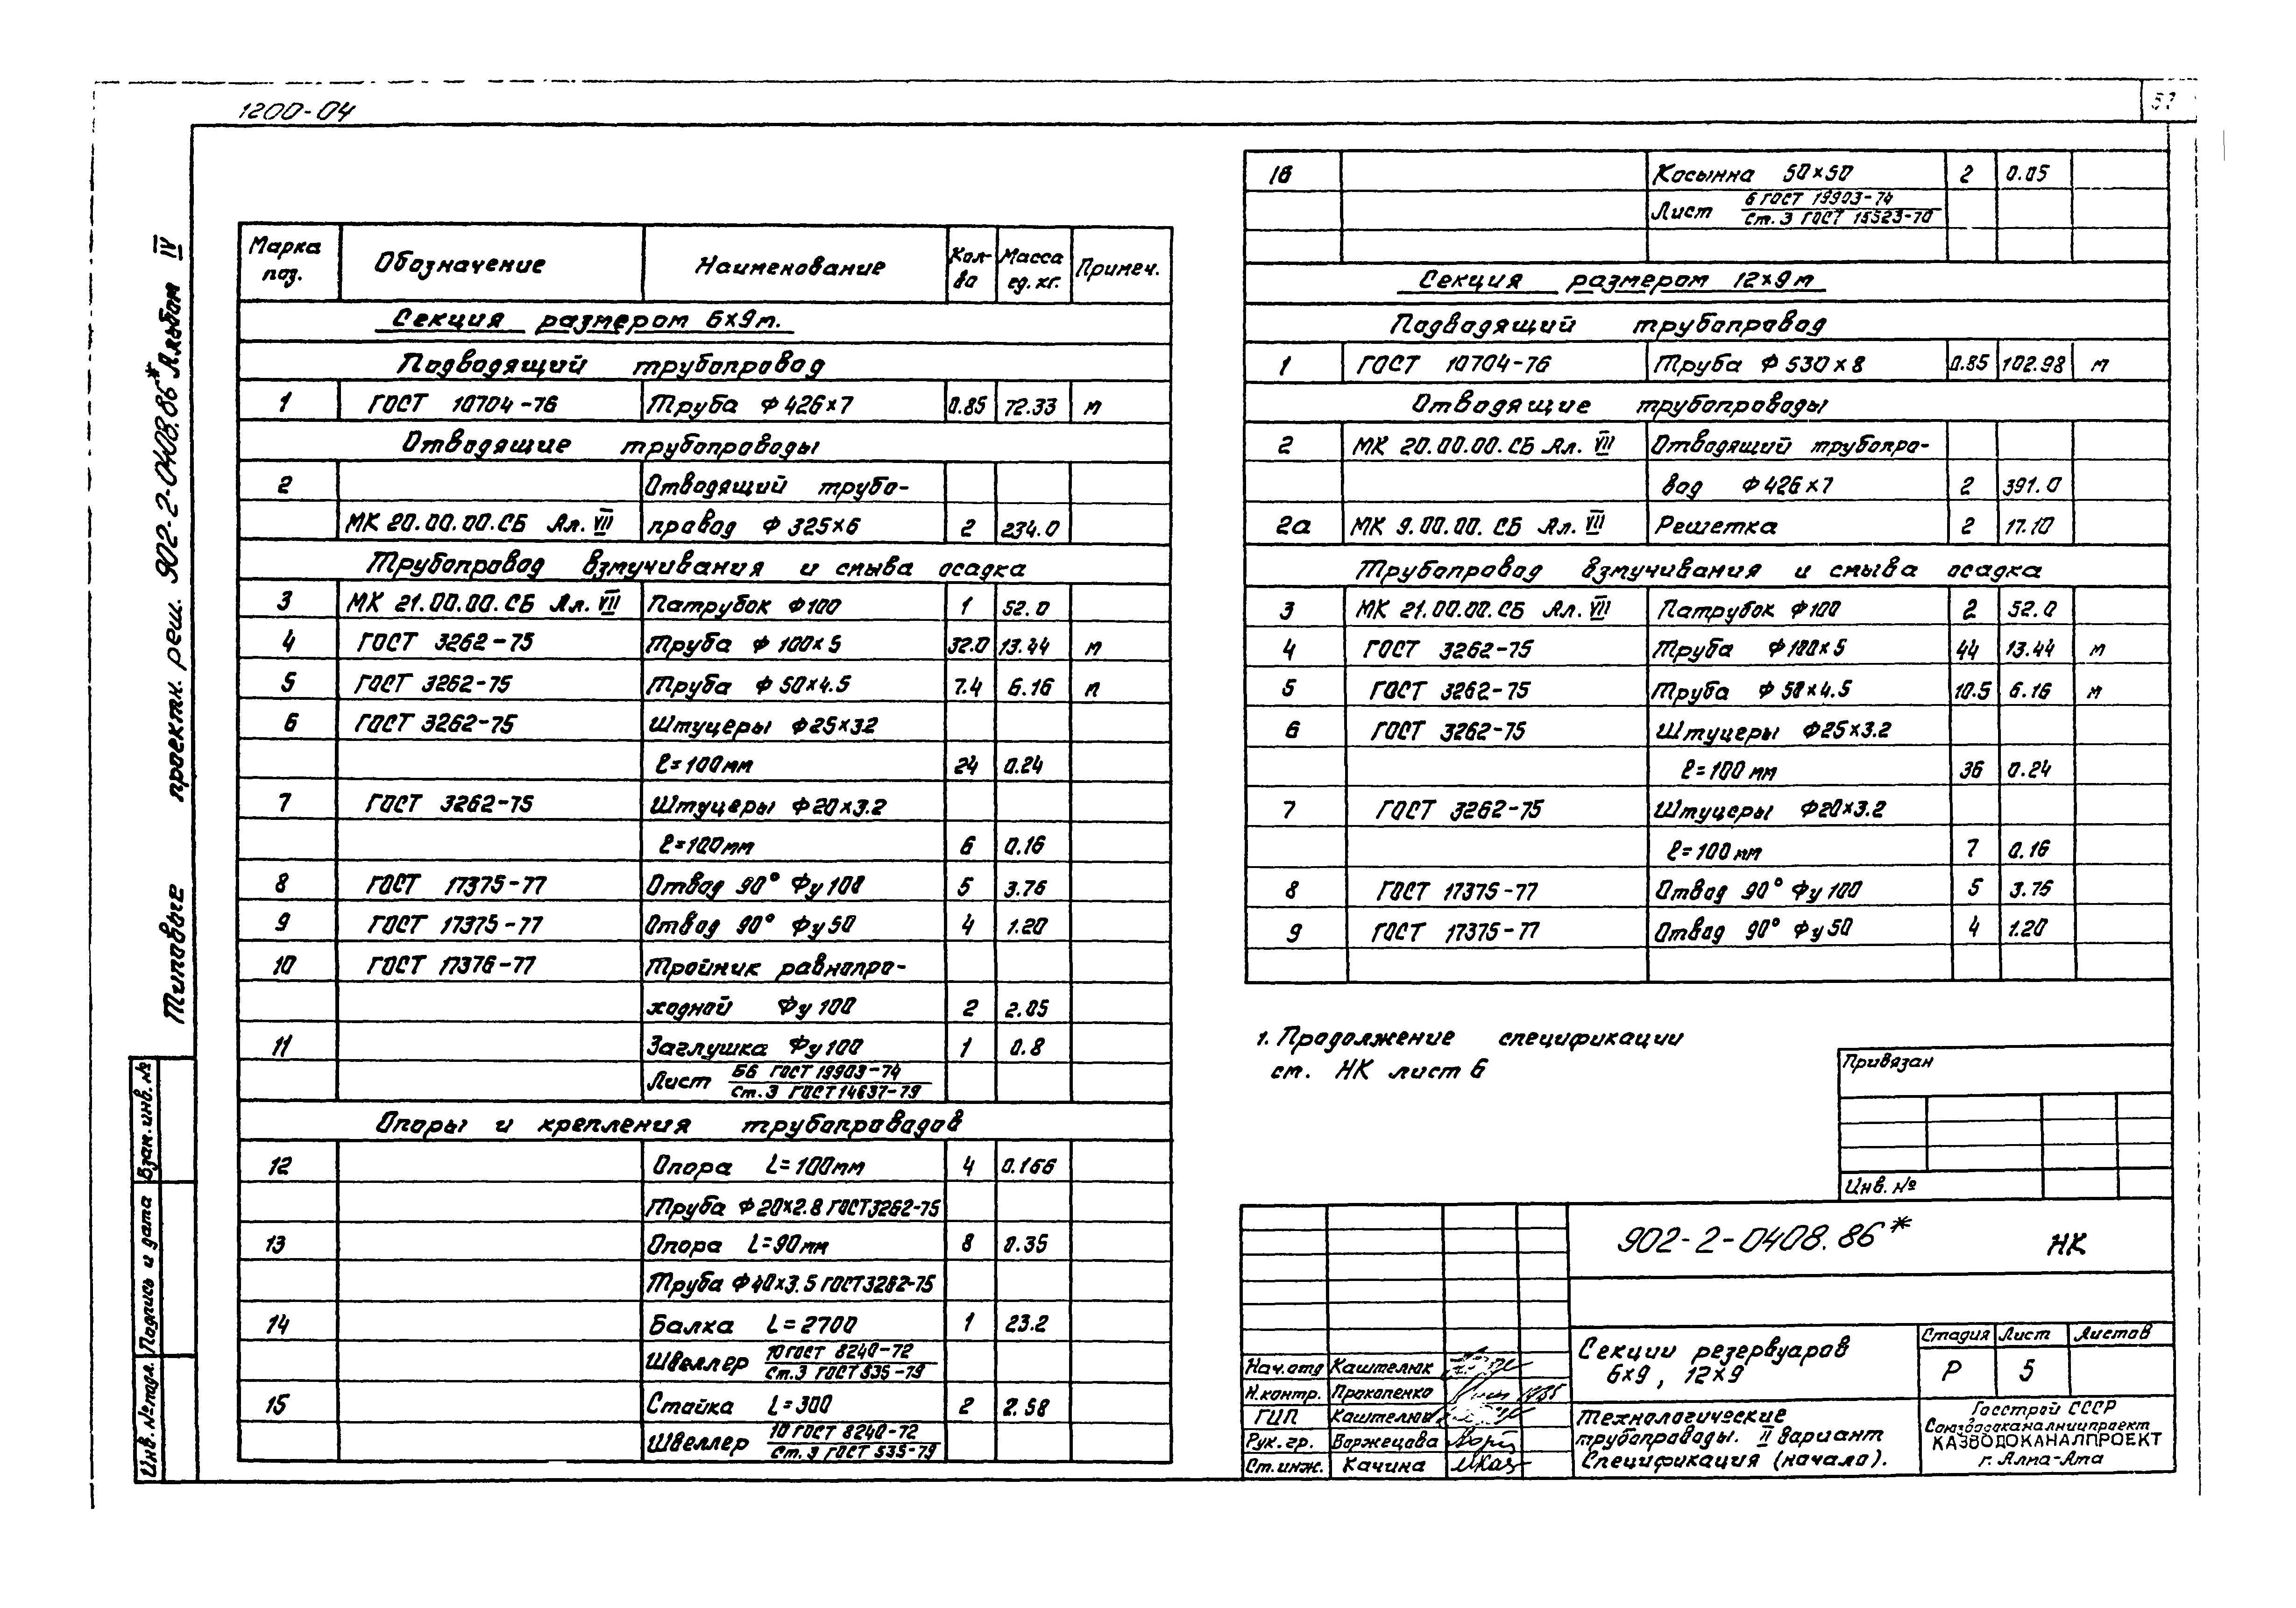 1200-04
Типовые проектн. реш. 902-2-0408.86* Альбом IV
Взам. инв. №
Подпись и дата
Инв. № подл.
Марка поз. Обозначение Наименование Кол-ва Масса ед. кг. Примеч.
Секция размером 6×9м.
Подводящий трубопровод
1 ГОСТ 10704-76 Труба Ф426×7 0.85 72.33 м
Отводящие трубопроводы
2 Отводящий трубо-
МК 20.00.00.СБ Ал. VII провод Ф325×6 2 234.0
Трубопровод взмучивания и смыва осадка
3 МК 21.00.00.СБ Ал. VII Патрубок Ф100 1 52.0
4 ГОСТ 3262-75 Труба Ф100×5 32.0 13.44 м
5 ГОСТ 3262-75 Труба Ф50×4.5 7.4 6.16 м
6 ГОСТ 3262-75 Штуцеры Ф25×32
ℓ=100мм 24 0.24
7 ГОСТ 3262-75 Штуцеры Ф20×3.2
ℓ=100мм 6 0.16
8 ГОСТ 17375-77 Отвод 90° Фу100 5 3.76
9 ГОСТ 17375-77 Отвод 90° Фу50 4 1.20
10 ГОСТ 17376-77 Тройник равнопро-
ходной Фу100 2 2.05
11 Заглушка Фу100 1 0.8
Лист Б6 ГОСТ 19903-74
Ст.3 ГОСТ 14637-79
Опоры и крепления трубопроводов
12 Опора L=100мм 4 0.166
Труба Ф20×2.8 ГОСТ 3262-75
13 Опора L=90мм 8 0.35
Труба Ф40×3.5 ГОСТ 3262-75
14 Балка L=2700 1 23.2
Швеллер 10 ГОСТ 8240-72
Ст.3 ГОСТ 535-79
15 Стойка L=300 2 2.58
Швеллер 10 ГОСТ 8240-72
Ст.3 ГОСТ 535-79
16 Косынка 50×50 2 0.05
Лист 6 ГОСТ 19903-74
Ст.3 ГОСТ 15523-70
Секция размером 12×9м
Подводящий трубопровод
1 ГОСТ 10704-76 Труба Ф530×8 0.85 102.98 м
Отводящие трубопроводы
2 МК 20.00.00.СБ Ал. VII Отводящий трубопро-
вод Ф426×7 2 391.0
2а МК 9.00.00.СБ Ал. VII Решетка 2 17.10
Трубопровод взмучивания и смыва осадка
3 МК 21.00.00.СБ Ал. VII Патрубок Ф100 2 52.0
4 ГОСТ 3262-75 Труба Ф100×5 44 13.44 м
5 ГОСТ 3262-75 Труба Ф50×4.5 10.5 6.16 м
6 ГОСТ 3262-75 Штуцеры Ф25×3.2
ℓ=100мм 36 0.24
7 ГОСТ 3262-75 Штуцеры Ф20×3.2
ℓ=100мм 7 0.16
8 ГОСТ 17375-77 Отвод 90° Фу100 5 3.76
9 ГОСТ 17375-77 Отвод 90° Фу50 4 1.20
1. Продолжение спецификации
ст. НК лист 6
Привязан
Инв. №
902-2-0408.86* НК
Секции резервуаров
6×9, 12×9
Стадия Лист Листов
Р 5
Технологические
трубопроводы. II вариант
Спецификация (начало).
Госстрой СССР
Союзводоканалниипроект
КАЗВОДОКАНАЛПРОЕКТ
г. Алма-Ата
Нач.отд Каштелюк
Н.контр. Прокопенко
ГИП Каштелюк
Рук.гр. Воржецова
Ст.инж. Качина